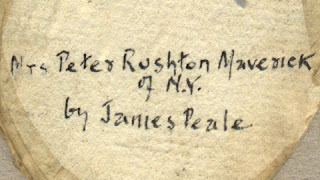 Mrs Peter Rushton Maverick
of N.Y.
by James Peale